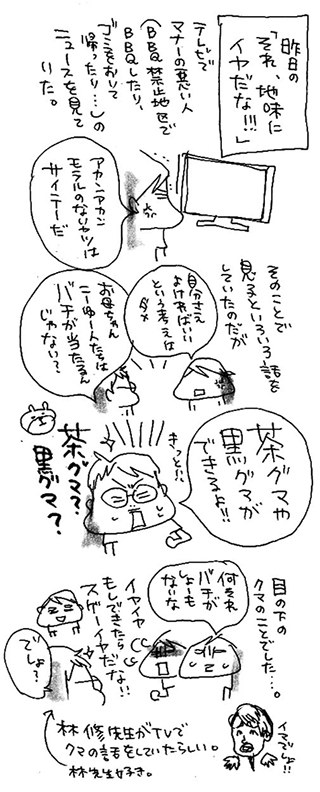 昨日の
「それ、地味に
イヤだな!!!」
テレビで
マナーの悪い人
(BBQ禁止地区で
BBQしたり、
ゴミをおいて
帰ったり…)の
ニュースを見て
いた。
アカンアカン
モラルのないヤツは
サイテーだ
そのことで
見るといろいろ話を
していたのだが
自分さえ
よければいい
という考えは
ダメ
お母ちゃん
こーゆー人たちは
バチが当たるん
じゃない?
きっと!!
茶グマや
黒グマが
できるよ!!
茶グマ?
黒グマ?
目の下の
クマのことでした…。
何それ
バチが
しょーも
ないな
イヤイヤ
もしできたら
スゲーイヤだな!!
でしょ?
イマでしょ!!
林修先生がTVで
クマの話をしていたらしい。
林先生好き。